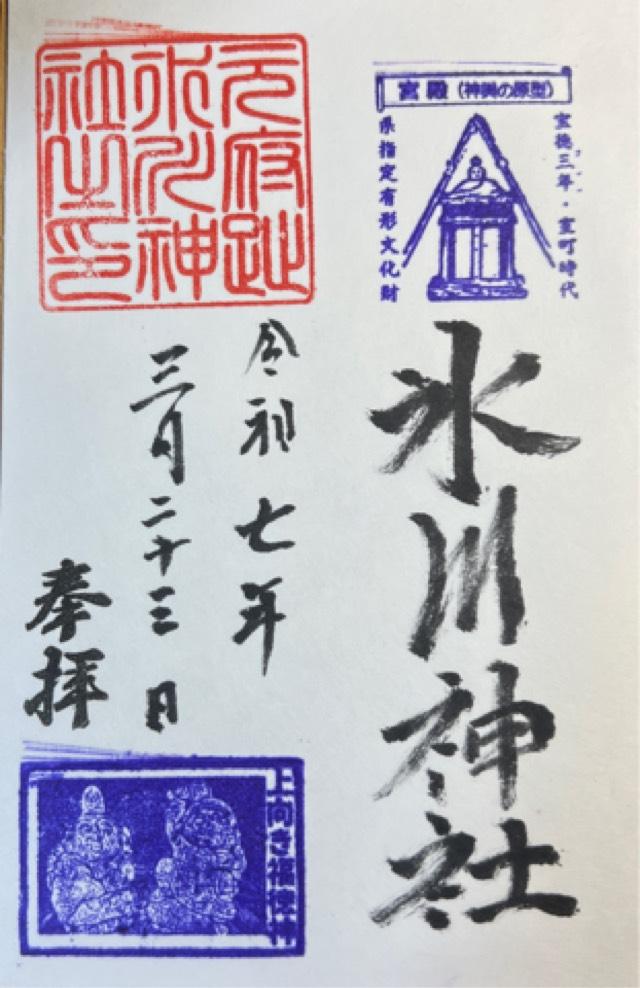 宮殿（神輿の原型）
宝徳三年・室町時代
県指定有形文化財
氷川神社
元府趾
氷川神
社之印
令和七年
三月二十三日
奉拝
上向き福徳神